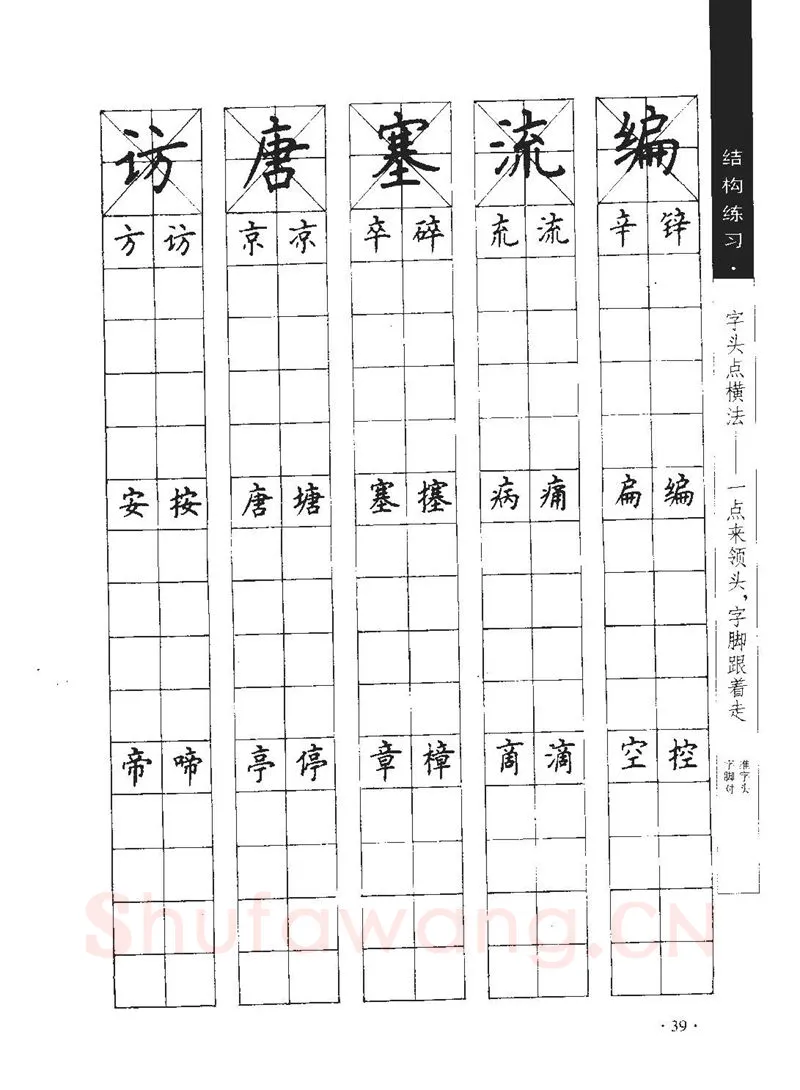 访 唐 塞 流 编
方 访 京 凉 卒 碎 㐬 流 辛 锌
安 按 唐 塘 塞 搴 病 痛 扁 编
帝 啼 亭 停 章 樟 啇 滴 空 控
结构练习·
字头点横法——一点来领头,字脚跟着走
字脚对
准字头
Shufawang.CN
·39·